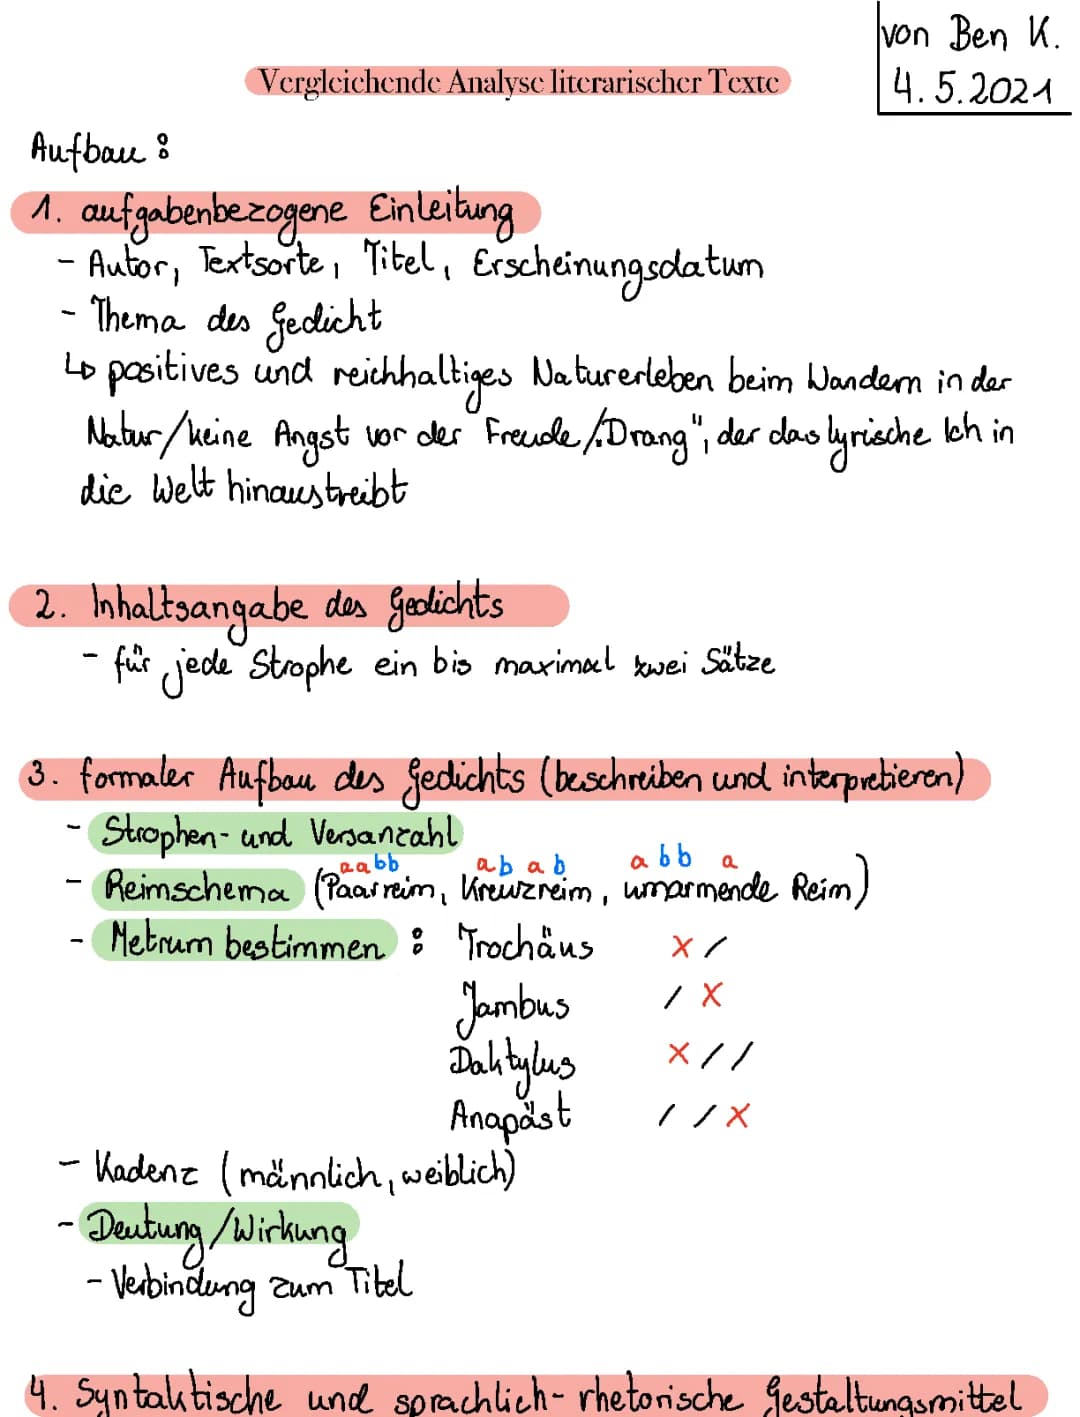 von Ben K.
4.5.2021
Vergleichende Analyse literarischer Texte
Aufbau:
1. aufgabenbezogene Einleitung
- Autor, Textsorte, Titel, Erscheinungsdatum
- Thema des Gedicht
↳ positives und reichhaltiges Naturerleben beim Wandern in der
Natur/keine Angst vor der Freude/"Drang", der das lyrische Ich in
die Welt hinaustreibt
2. Inhaltsangabe des Gedichts
- für jede Strophe ein bis maximal zwei Sätze
3. formaler Aufbau des Gedichts (beschreiben und interpretieren)
- Strophen- und Versanzahl
aabb abab abba
- Reimschema (Paarreim, Kreuzreim, umarmende Reim)
- Metrum bestimmen: Trochäus X /
Jambus / X
Daktylus X / /
Anapäst / / X
- Kadenz (männlich, weiblich)
- Deutung/Wirkung
- Verbindung zum Titel
4. Syntaktische und sprachlich-rhetorische Gestaltungsmittel